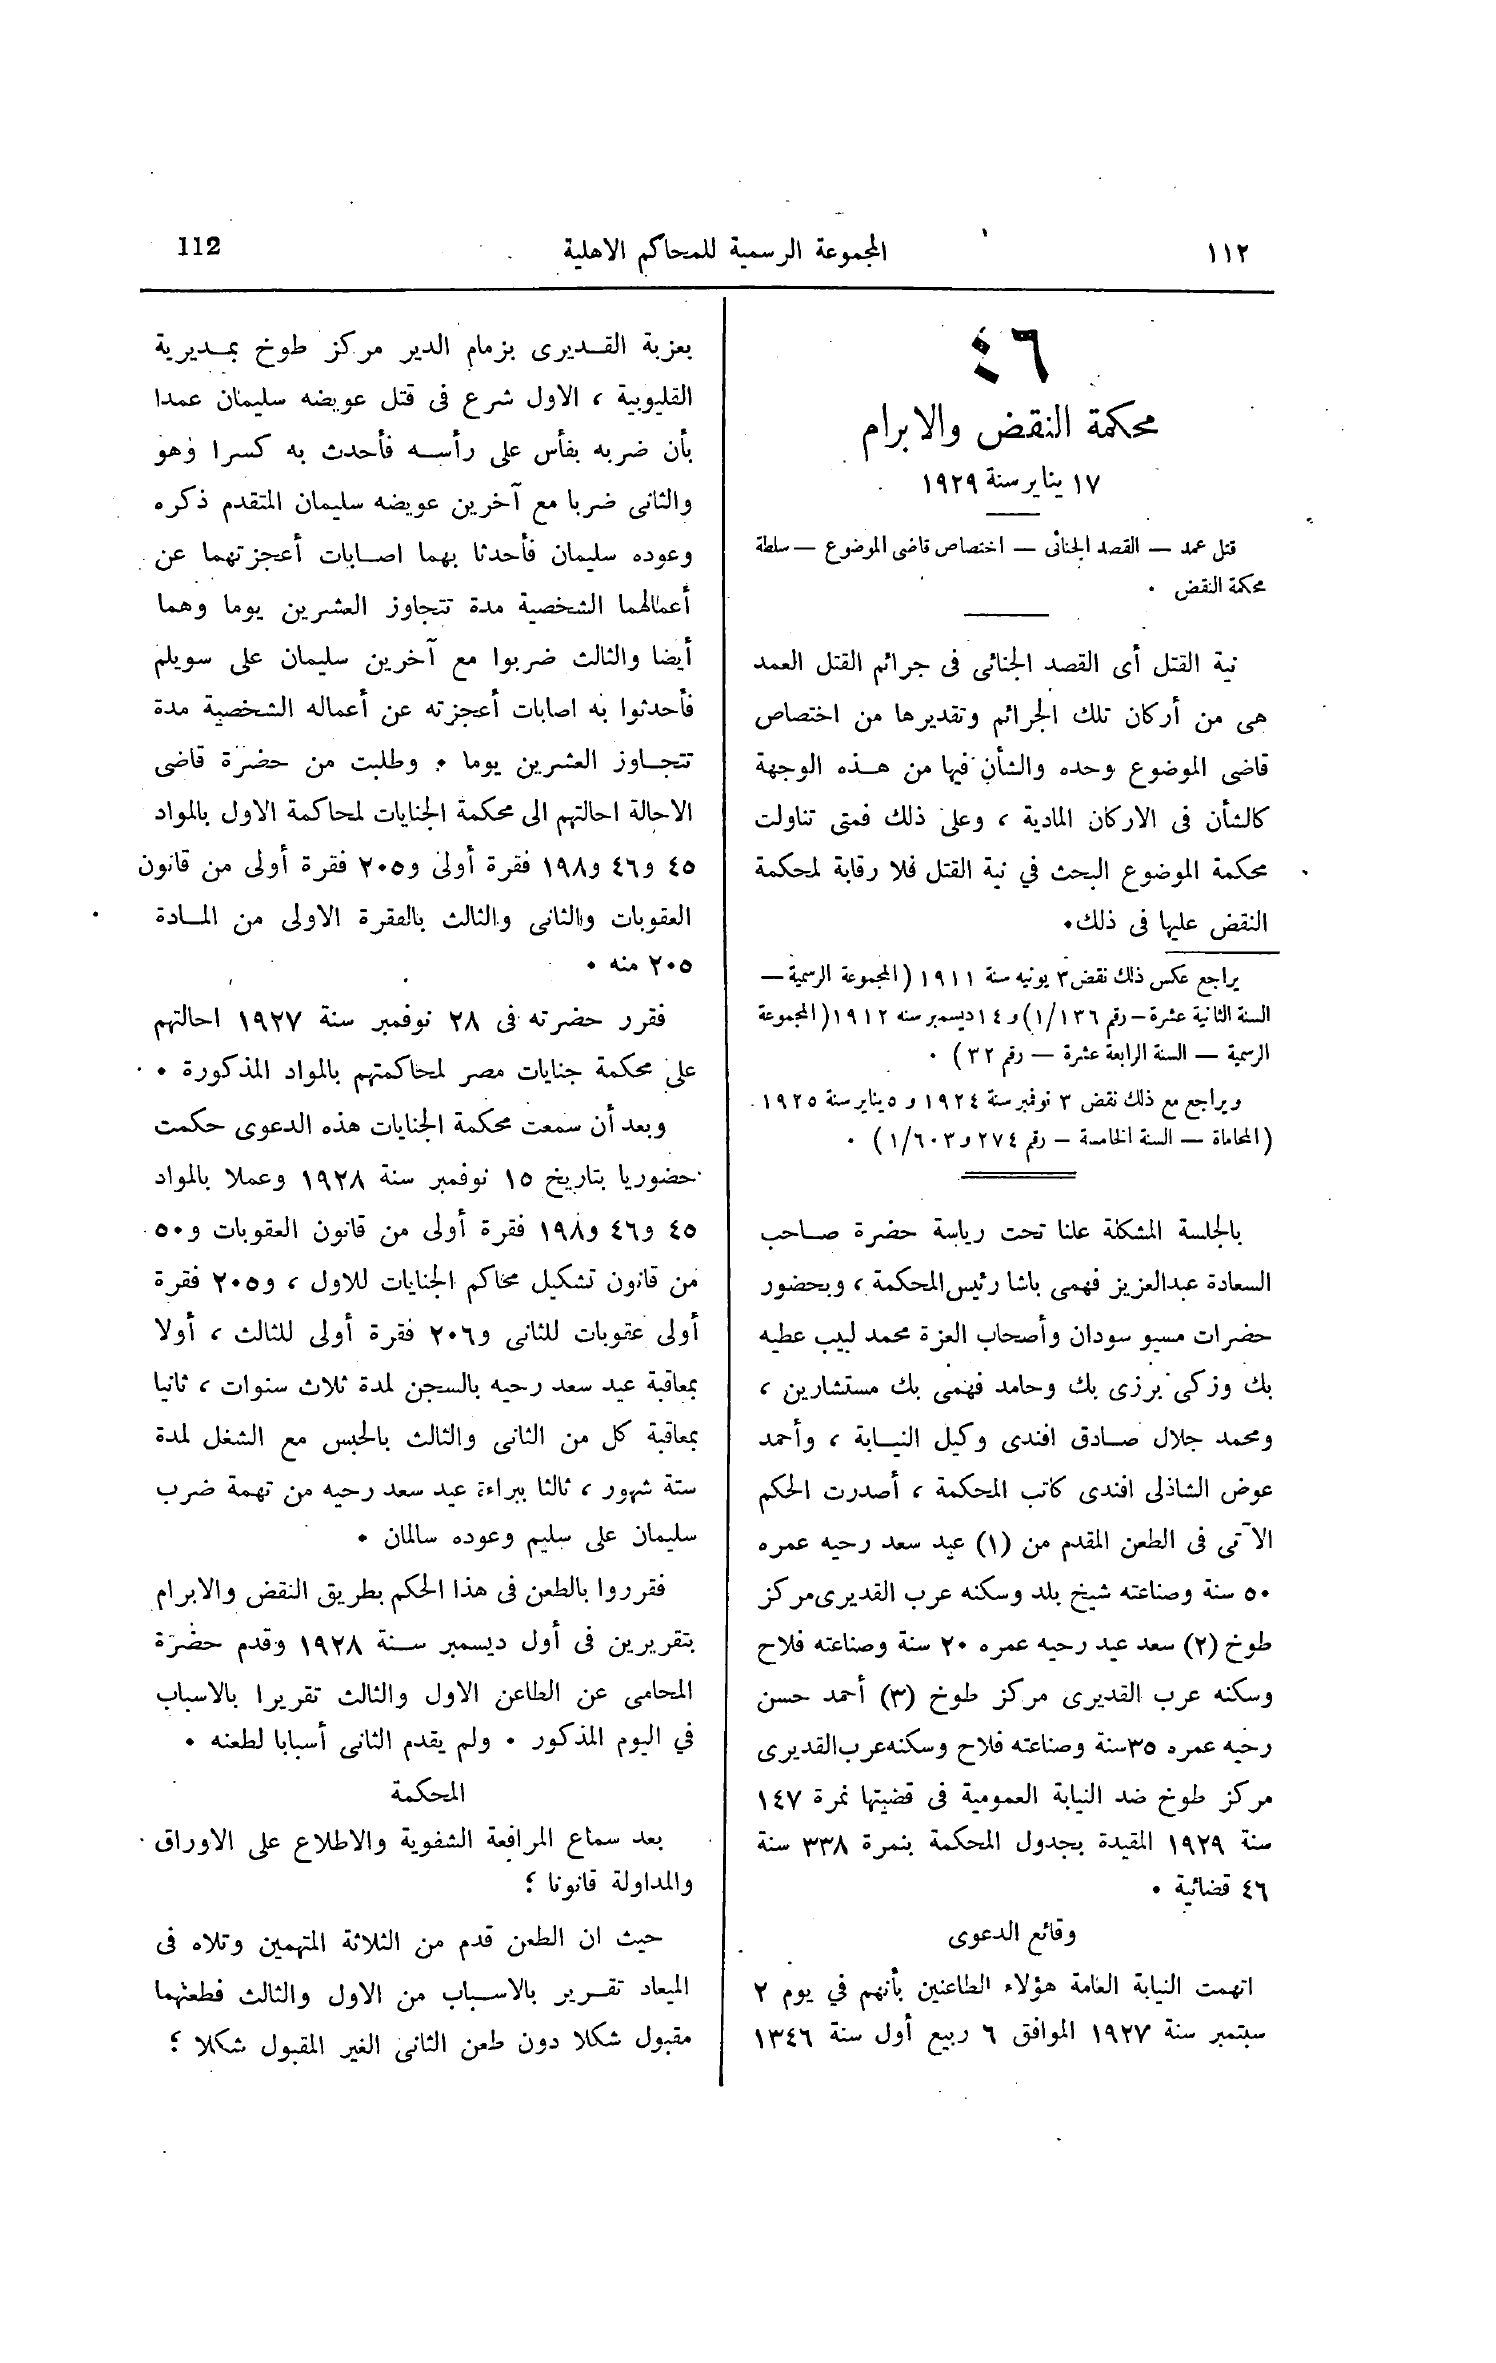 ١١٢ المجموعة الرسمية للمحاكم الاهلية 112
٤٦
محكمة النقض والابرام
١٧ يناير سنة ١٩٢٩
قتل عمد — القصد الجنائى — اختصاص قاضى الموضوع — سلطة
محكمة النقض .
نية القتل أى القصد الجنائى فى جرائم القتل العمد
هى من أركان تلك الجرائم وتقديرها من اختصاص
قاضى الموضوع وحده والشأن فيها من هذه الوجهة
كالشأن فى الاركان المادية ، وعلى ذلك فمتى تناولت
محكمة الموضوع البحث في نية القتل فلا رقابة لمحكمة
النقض عليها فى ذلك.
يراجع عكس ذلك نقض ٣ يونيه سنة ١٩١١ (المجموعة الرسمية —
السنة الثانية عشرة – رقم ١/١٣٦) و ١٤ ديسمبر سنه ١٩١٢ (المجموعة
الرسمية — السنة الرابعة عشرة — رقم ٣٢) .
ويراجع مع ذلك نقض ٣ نوفمبر سنة ١٩٢٤ و ٥ يناير سنة ١٩٢٥
(المحاماة — السنة الخامسة – رقم ٢٧٤ و ١/٦٠٣) .
بالجلسة المشكلة علنا تحت رياسة حضرة صاحب
السعادة عبدالعزيز فهمى باشا رئيس المحكمة ، وبحضور
حضرات مسيو سودان وأصحاب العزة محمد لبيب عطيه
بك وزكى برزى بك وحامد فهمى بك مستشارين ،
ومحمد جلال صادق افندى وكيل النيابة ، وأحمد
عوض الشاذلى افندى كاتب المحكمة ، أصدرت الحكم
الآتى فى الطعن المقدم من (١) عيد سعد رحيه عمره
٥٠ سنة وصناعته شيخ بلد وسكنه عرب القديرى مركز
طوخ (٢) سعد عيد رحيه عمره ٢٠ سنة وصناعته فلاح
وسكنه عرب القديرى مركز طوخ (٣) أحمد حسن
رحيه عمره ٣٥ سنة وصناعته فلاح وسكنه عرب القديرى
مركز طوخ ضد النيابة العمومية فى قضيتها نمرة ١٤٧
سنة ١٩٢٩ المقيدة بجدول المحكمة بنمرة ٣٣٨ سنة
٤٦ قضائية .
وقائع الدعوى
اتهمت النيابة العامة هؤلاء الطاعنين بأنهم في يوم ٢
سبتمبر سنة ١٩٢٧ الموافق ٦ ربيع أول سنة ١٣٤٦
بعزبة القديرى بزمام الدير مركز طوخ بمديرية
القليوبية ، الاول شرع فى قتل عويضه سليمان عمدا
بأن ضربه بفأس على رأسه فأحدث به كسرا وهو
والثانى ضربا مع آخرين عويضه سليمان المتقدم ذكره
وعوده سليمان فأحدثا بهما اصابات أعجزتهما عن
أعمالهما الشخصية مدة تتجاوز العشرين يوما وهما
أيضا والثالث ضربوا مع آخرين سليمان على سويلم
فأحدثوا به اصابات أعجزته عن أعماله الشخصية مدة
تتجاوز العشرين يوما . وطلبت من حضرة قاضى
الاحالة احالتهم الى محكمة الجنايات لمحاكمة الاول بالمواد
٤٥ و٤٦ و١٩٨ فقرة أولى و٢٠٥ فقرة أولى من قانون
العقوبات والثانى والثالث بالفقرة الاولى من المادة
٢٠٥ منه .
فقرر حضرته فى ٢٨ نوفمبر سنة ١٩٢٧ احالتهم
على محكمة جنايات مصر لمحاكمتهم بالمواد المذكورة .
وبعد أن سمعت محكمة الجنايات هذه الدعوى حكمت
حضوريا بتاريخ ١٥ نوفمبر سنة ١٩٢٨ وعملا بالمواد
٤٥ و٤٦ و١٩٨ فقرة أولى من قانون العقوبات و٥٠
من قانون تشكيل محاكم الجنايات للاول ، و٢٠٥ فقرة
أولى عقوبات للثانى و٢٠٦ فقرة أولى للثالث ، أولا
بمعاقبة عيد سعد رحيه بالسجن لمدة ثلاث سنوات ، ثانيا
بمعاقبة كل من الثانى والثالث بالحبس مع الشغل لمدة
ستة شهور ، ثالثا ببراءة عيد سعد رحيه من تهمة ضرب
سليمان على سليم وعوده سالمان .
فقرروا بالطعن فى هذا الحكم بطريق النقض والابرام
بتقريرين فى أول ديسمبر سنة ١٩٢٨ وقدم حضرة
المحامى عن الطاعن الاول والثالث تقريرا بالاسباب
في اليوم المذكور . ولم يقدم الثانى أسبابا لطعنه .
المحكمة
بعد سماع المرافعة الشفوية والاطلاع على الاوراق
والمداولة قانونا ؛
حيث ان الطعن قدم من الثلاثة المتهمين وتلاه فى
الميعاد تقرير بالاسباب من الاول والثالث فطعنهما
مقبول شكلا دون طعن الثانى الغير المقبول شكلا ؛